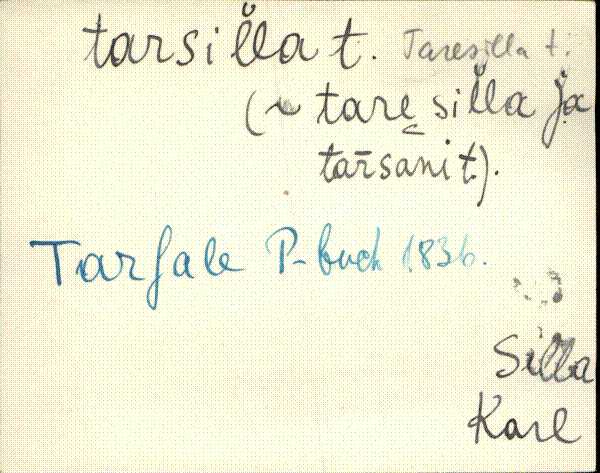 tarsil̆la t. Taresilla t.
(~ tare̬ sil̆la ja
tar̄sani t.).
Tarsale P-buch 1836.
Silla
Karl